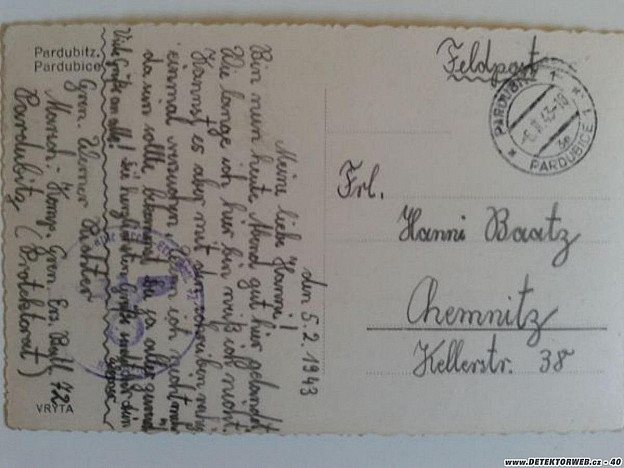 Pardubitz.
Pardubice.
Feldpost
PARDUBITZ 1
PARDUBICE 1
Frl.
Hanni Baatz
Chemnitz
Kellerstr. 38
den 5.2.1943
Meine liebe Hanni!
Bin nun heute Abend gut hier gelandet.
Wie lange ich hier bin weiß ich nicht.
Kannst es aber mit dem schreiben
einmal versuchen. Wenn ich nicht mehr
da sein sollte bekommst Du ja alles
Sei herzlich gegrüßt
Viele Grüße an alle!
Gren. Werner
Marsch-Komp. Gren. Ers. Batl. 72
Pardubitz (Protektorat)
VRYTA
www.DETEKTORWEB.cz - 40